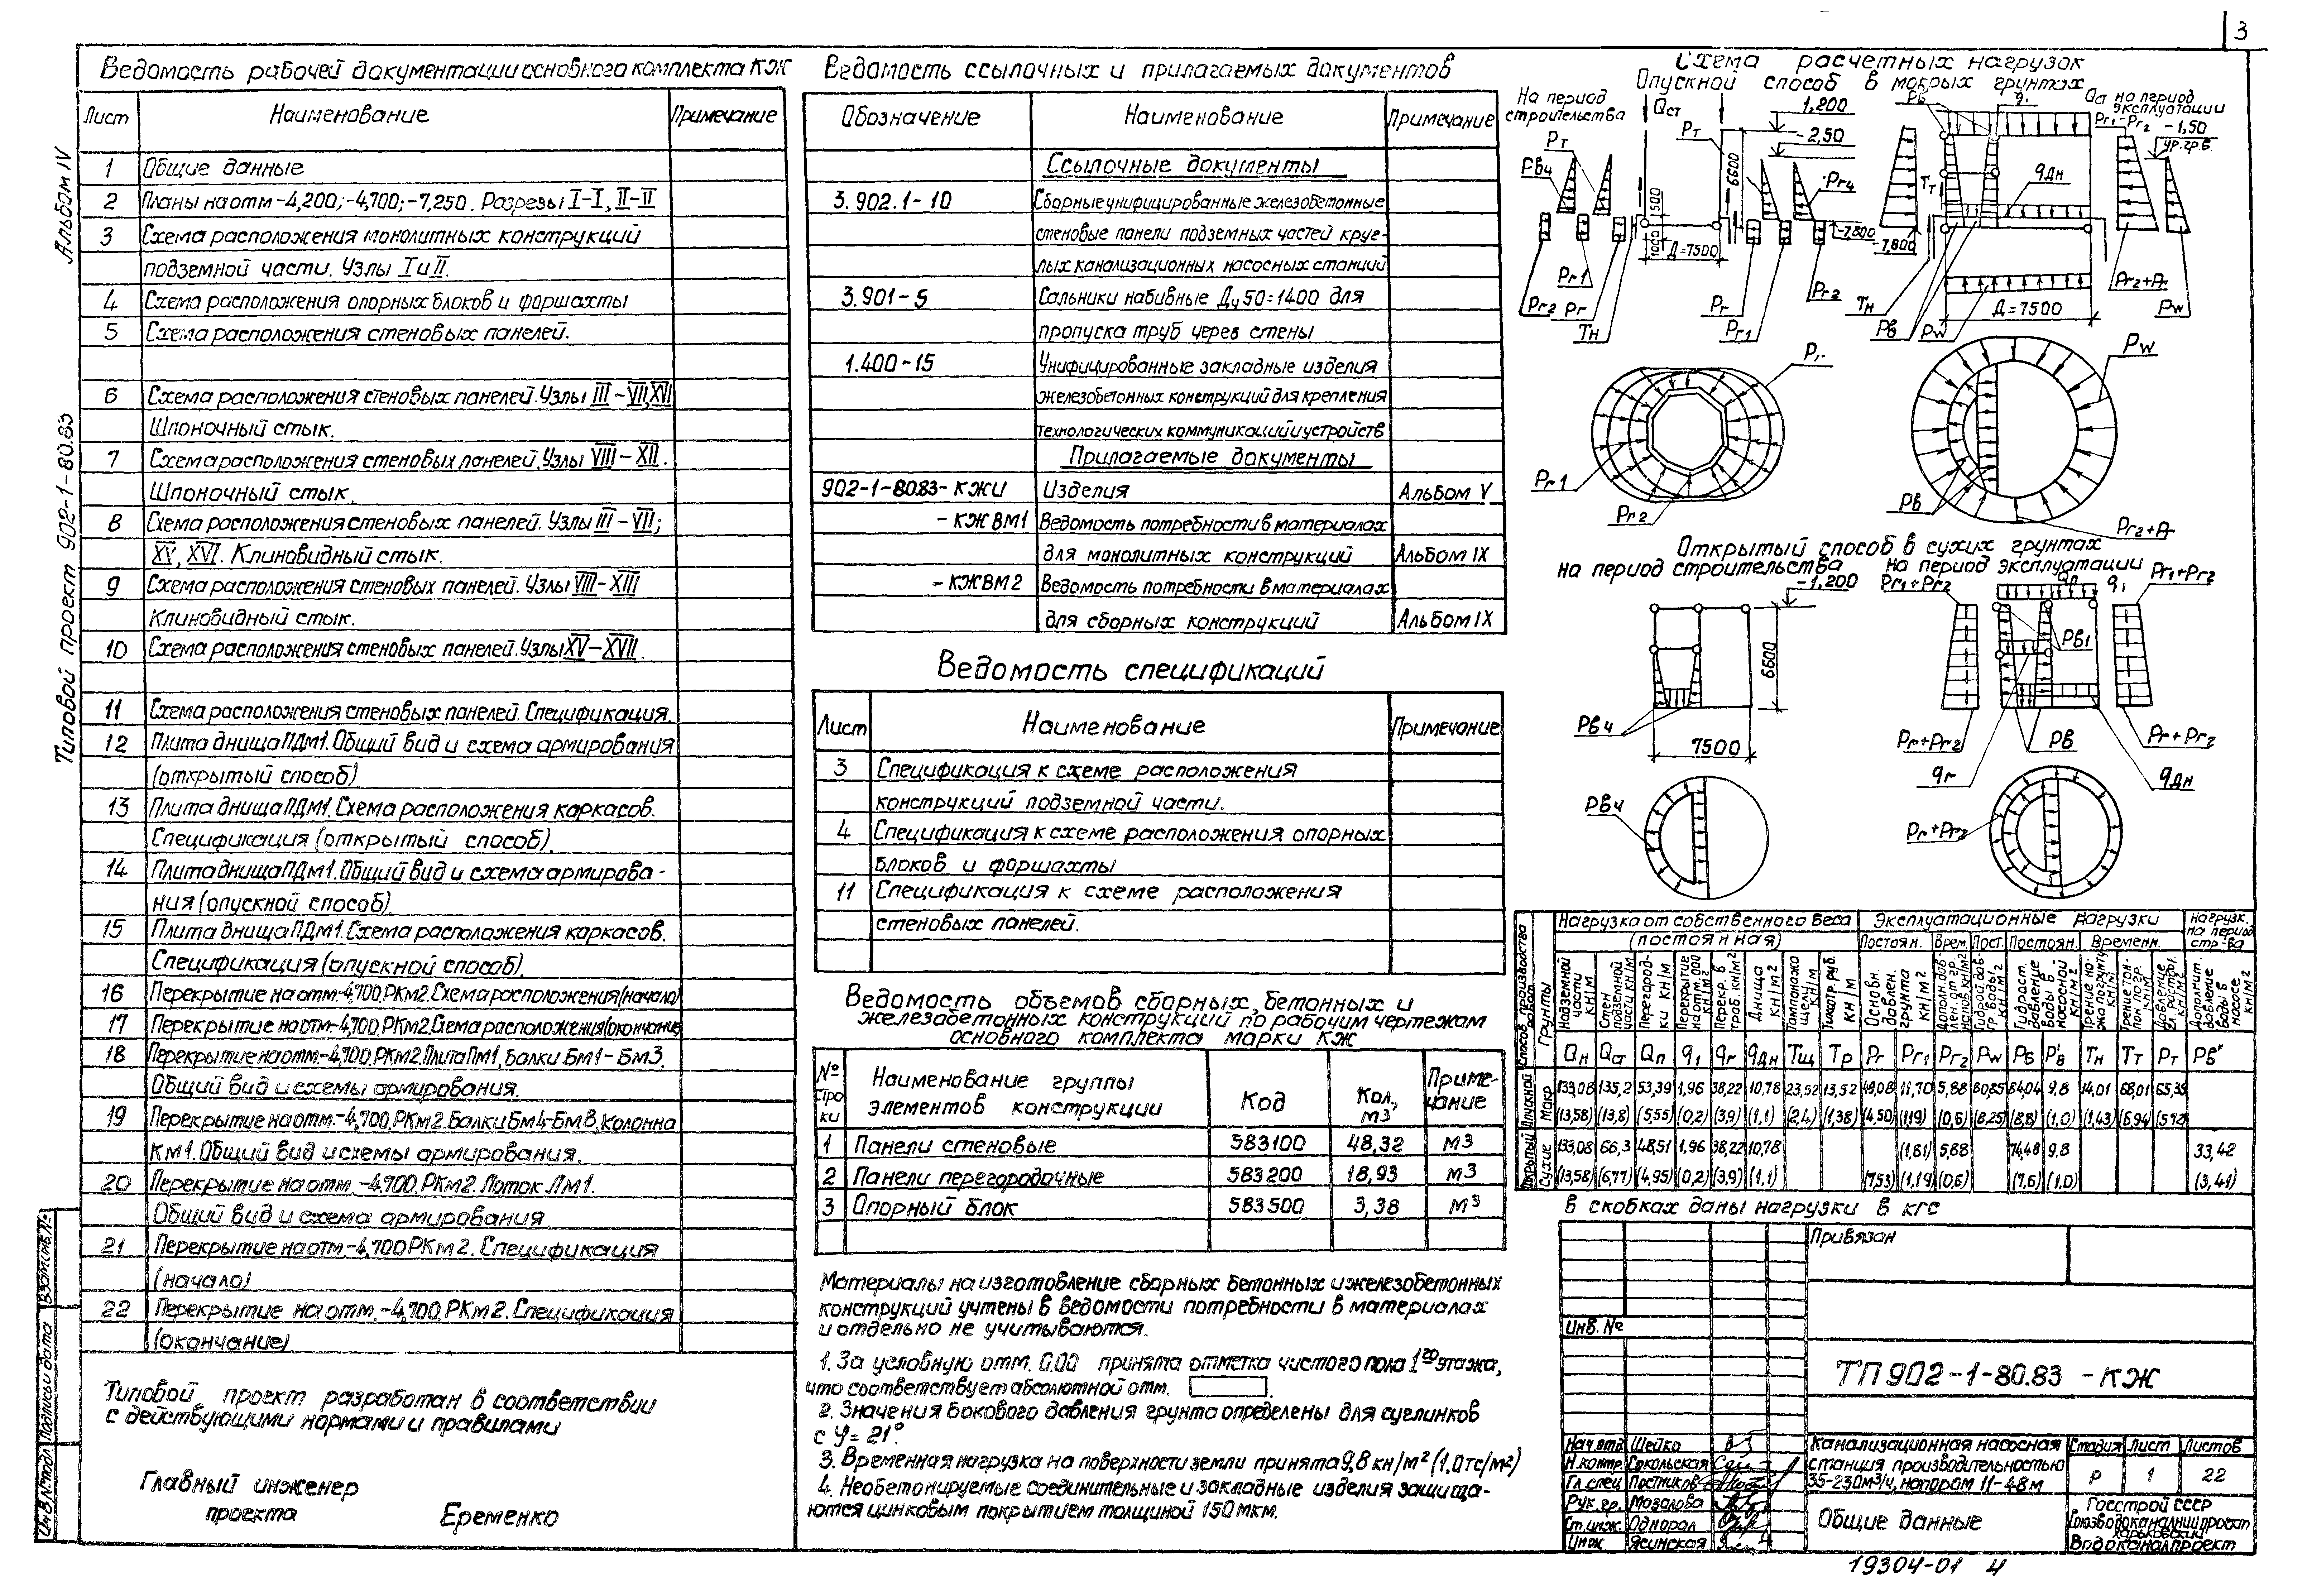 3
Альбом IV
Типовой проект 902-1-80.83
Ведомость рабочей документации основного комплекта КЖ
Лист Наименование Примечание
1 Общие данные
2 Планы на отм -4,200; -4,700; -7,250. Разрезы I-I, II-II
3 Схема расположения монолитных конструкций
подземной части. Узлы I и II.
4 Схема расположения опорных блоков и форшахты
5 Схема расположения стеновых панелей.
6 Схема расположения стеновых панелей. Узлы III-VII, XVI
Шпоночный стык.
7 Схема расположения стеновых панелей. Узлы VIII-XII.
Шпоночный стык.
8 Схема расположения стеновых панелей. Узлы III-VII;
XV, XVI. Клиновидный стык.
9 Схема расположения стеновых панелей. Узлы VIII-XIII
Клиновидный стык.
10 Схема расположения стеновых панелей. Узлы XV-XVII.
11 Схема расположения стеновых панелей. Спецификация.
12 Плита днища ПДм1. Общий вид и схема армирования
(открытый способ)
13 Плита днища ПДм1. Схема расположения каркасов.
Спецификация (открытый способ).
14 Плита днища ПДм1. Общий вид и схема армирова-
ния (опускной способ).
15 Плита днища ПДм1. Схема расположения каркасов.
Спецификация (опускной способ).
16 Перекрытие на отм.-4,700. РКм2. Схема расположения (начало)
17 Перекрытие на отм.-4,700. РКм2. Схема расположения (окончание)
18 Перекрытие на отм.-4,700. РКм2. Плита Пм1, Балки Бм1-Бм3.
Общий вид и схемы армирования.
19 Перекрытие на отм.-4,700. РКм2. Балки Бм4-Бм8, Колонна
Км1. Общий вид и схемы армирования.
20 Перекрытие на отм. -4,700. РКм2. Лоток Лм1.
Общий вид и схема армирования
21 Перекрытие на отм -4,700 РКм2. Спецификация
(начало)
22 Перекрытие на отм. -4,700. РКм2. Спецификация
(окончание)
Типовой проект разработан в соответствии
с действующими нормами и правилами
Главный инженер
проекта Еременко
Инв.№подл Подпись и дата Взам.инв.№
Ведомость ссылочных и прилагаемых документов
Обозначение Наименование Примечание
Ссылочные документы
3.902.1-10 Сборные унифицированные железобетонные
стеновые панели подземных частей круг-
лых канализационных насосных станций
3.901-5 Сальники набивные Ду50÷1400 для
пропуска труб через стены
1.400-15 Унифицированные закладные изделия
железобетонных конструкций для крепления
технологических коммуникаций и устройств
Прилагаемые документы
902-1-80.83-КЖИ Изделия Альбом V
-КЖ ВМ1 Ведомость потребности в материалах
для монолитных конструкций Альбом IX
-КЖВМ2 Ведомость потребности в материалах
для сборных конструкций Альбом IX
Ведомость спецификаций
Лист Наименование Примечание
3 Спецификация к схеме расположения
конструкций подземной части.
4 Спецификация к схеме расположения опорных
блоков и форшахты
11 Спецификация к схеме расположения
стеновых панелей.
Ведомость объемов сборных, бетонных и
железобетонных конструкций по рабочим чертежам
основного комплекта марки КЖ
№ строки Наименование группы элементов конструкции Код Кол., м3 Примечание
1 Панели стеновые 583100 48,32 м3
2 Панели перегородочные 583200 18,93 м3
3 Опорный блок 583500 3,38 м3
Материалы на изготовление сборных бетонных и железобетонных
конструкций учтены в ведомости потребности в материалах
и отдельно не учитываются.
1. За условную отм. 0.00 принята отметка чистого пола 1го этажа,
что соответствует абсолютной отм.
2. Значения бокового давления грунта определены для суглинков
с φ = 21°.
3. Временная нагрузка на поверхности земли принята 9,8 кн/м² (1,0тс/м²)
4. Необетонируемые соединительные и закладные изделия защища-
ются цинковым покрытием толщиной 150 мкм.
Схема расчетных нагрузок
Опускной способ в мокрых грунтах
На период
строительства
Qст
Рт
1,200
-2,50
Рт
Рв4
6600
500
1000
Д=7500
Рг4
-7,800
Рг1
Рг2 Рг
Тн
Рг
Рг1
Рг2
Рв
q1
Qст на период
эксплуатации
Рг1-Рг2
-1,50
ур.гр.в.
Тт
qдн
-7,800
Тн
Рв
Рw
Д=7500
Рг2+Рг
Рw
Рг
Рг1
Рг2
Рw
Рв
Рг2+Рг
Открытый способ в сухих грунтах
на период строительства
на период эксплуатации
-1,200
6600
Рв4
7500
Рв4
Рг1+Рг2
Qп
q1
Рг1+Рг2
Рв1
Рг+Рг2
Рв
Рг+Рг2
qг
qдн
Рг+Рг2
Способ производства работ
Грунты
Нагрузка от собственного веса
(постоянная)
Эксплуатационные нагрузки
Нагрузк. на период стр-ва
Постоян. Врем. Пост. Постоян. Временн.
Надземной части кн/м
Стен подземной части кн/м
Перегородки кн/м
Перекрытие на отм. 0.00 кн/м2
Перекр. в граб. кн/м2
Днища кн/м2
Тампонажа щели кн/м
Тиксотр. руб. кн/м
Основн. давлен. грунта кн/м2
Гидрост. давление воды в насосной кн/м2
Дополнит. давление воды в насосе кн/м2
Qн Qст Qп q1 qг qдн Тщ Тр Рг Рг1 Рг2 Рw Рв Р'в Тн Тт Рт Рв"
Опускной Мокр
133,08 135,2 53,39 1,96 38,22 10,78 23,52 13,52 49,08 11,70 5,88 80,85 84,04 9,8 14,01 68,01 65,39
(13,58) (13,8) (5,55) (0,2) (3,9) (1,1) (2,4) (1,38) (4,50) (1,19) (0,6) (8,25) (8,8) (1,0) (1,43) (6,94) (5,92)
Открытый Сухие
133,08 66,3 48,51 1,96 38,22 10,78 (1,61) 5,88 74,48 9,8 33,42
(13,58) (6,77) (4,95) (0,2) (3,9) (1,1) (7,53) (1,19) (0,6) (7,6) (1,0) (3,41)
В скобках даны нагрузки в кгс
Привязан
Инв. №
ТП 902-1-80.83 -КЖ
Нач отд Шейко
Н.контр. Сокольская
Гл.спец Постников
Рук.гр. Мозолова
Ст.инж. Однорал
Инж Ясинская
Канализационная насосная
станция производительностью
35-230м³/ч, напором 11-48м
Стадия Лист Листов
Р 1 22
Общие данные
Госстрой СССР
Союзводоканалниипроект
Харьковский
Водоканалпроект
19304-01 4